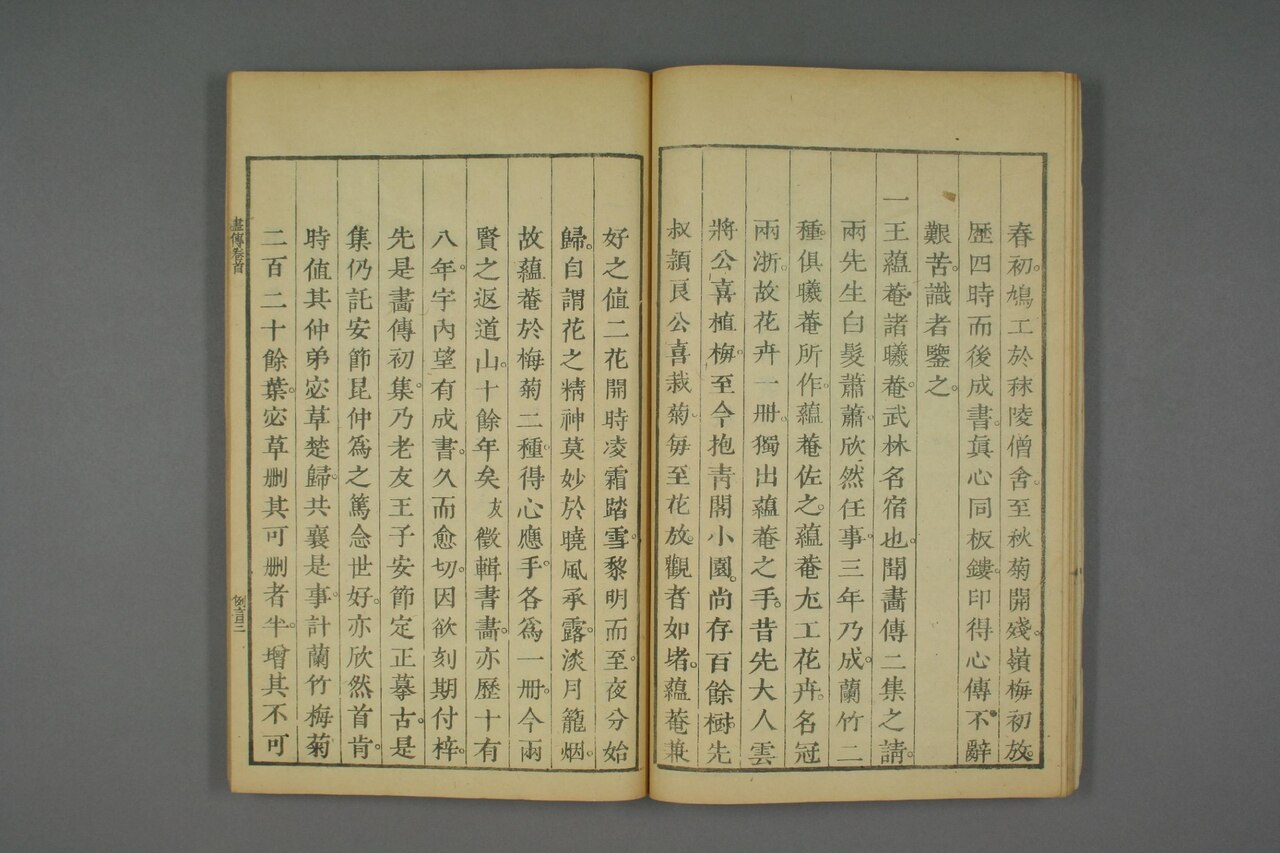 春初鳩工於秣陵僧舍至秋菊開殘嶺梅初放
歴四時而後成書眞心同板鏤印得心傳不辭
艱苦識者鑒之
一王蘊菴諸曦菴武林名宿也聞畫傳二集之請
兩先生白髮蕭蕭欣然任事三年乃成蘭竹二
種俱曦菴所作蘊菴佐之蘊菴尤工花卉名冠
兩浙故花卉一冊獨出蘊菴之手昔先大人雲
將公喜植梅至今抱靑閣小園尙存百餘樹先
叔頴良公喜栽菊每至花放觀者如堵蘊菴兼
好之值二花開時凌霜踏雪黎明而至夜分始
歸自謂花之精神莫妙於曉風承露淡月籠烟
故蘊菴於梅菊二種得心應手各爲一冊今兩
賢之返道山十餘年矣友徵輯書畫亦歷十有
八年宇內望有成書久而愈切因欲刻期付梓
先是畵傳初集乃老友王子安節定正摹古是
集仍託安節昆仲爲之篤念世好亦欣然首肯
時值其仲弟宓草楚歸共襄是事計蘭竹梅菊
二百二十餘葉宓草刪其可刪者半增其不可
畫傳卷首
例言三